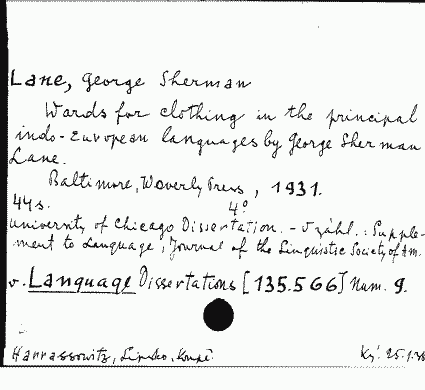 Lane, George Sherman
Words for clothing in the principal
indo-European languages by George Sherman
Lane.
Baltimore, Waverly Press, 1931.
44 s. 4°
University of Chicago Dissertation. - V záhl.: Supple-
ment to Language, Journal of the Linguistic Society of Am.
v. Language Dissertations [135.566] Num. 9.
Harrassowitz, Lipsko, koupě.